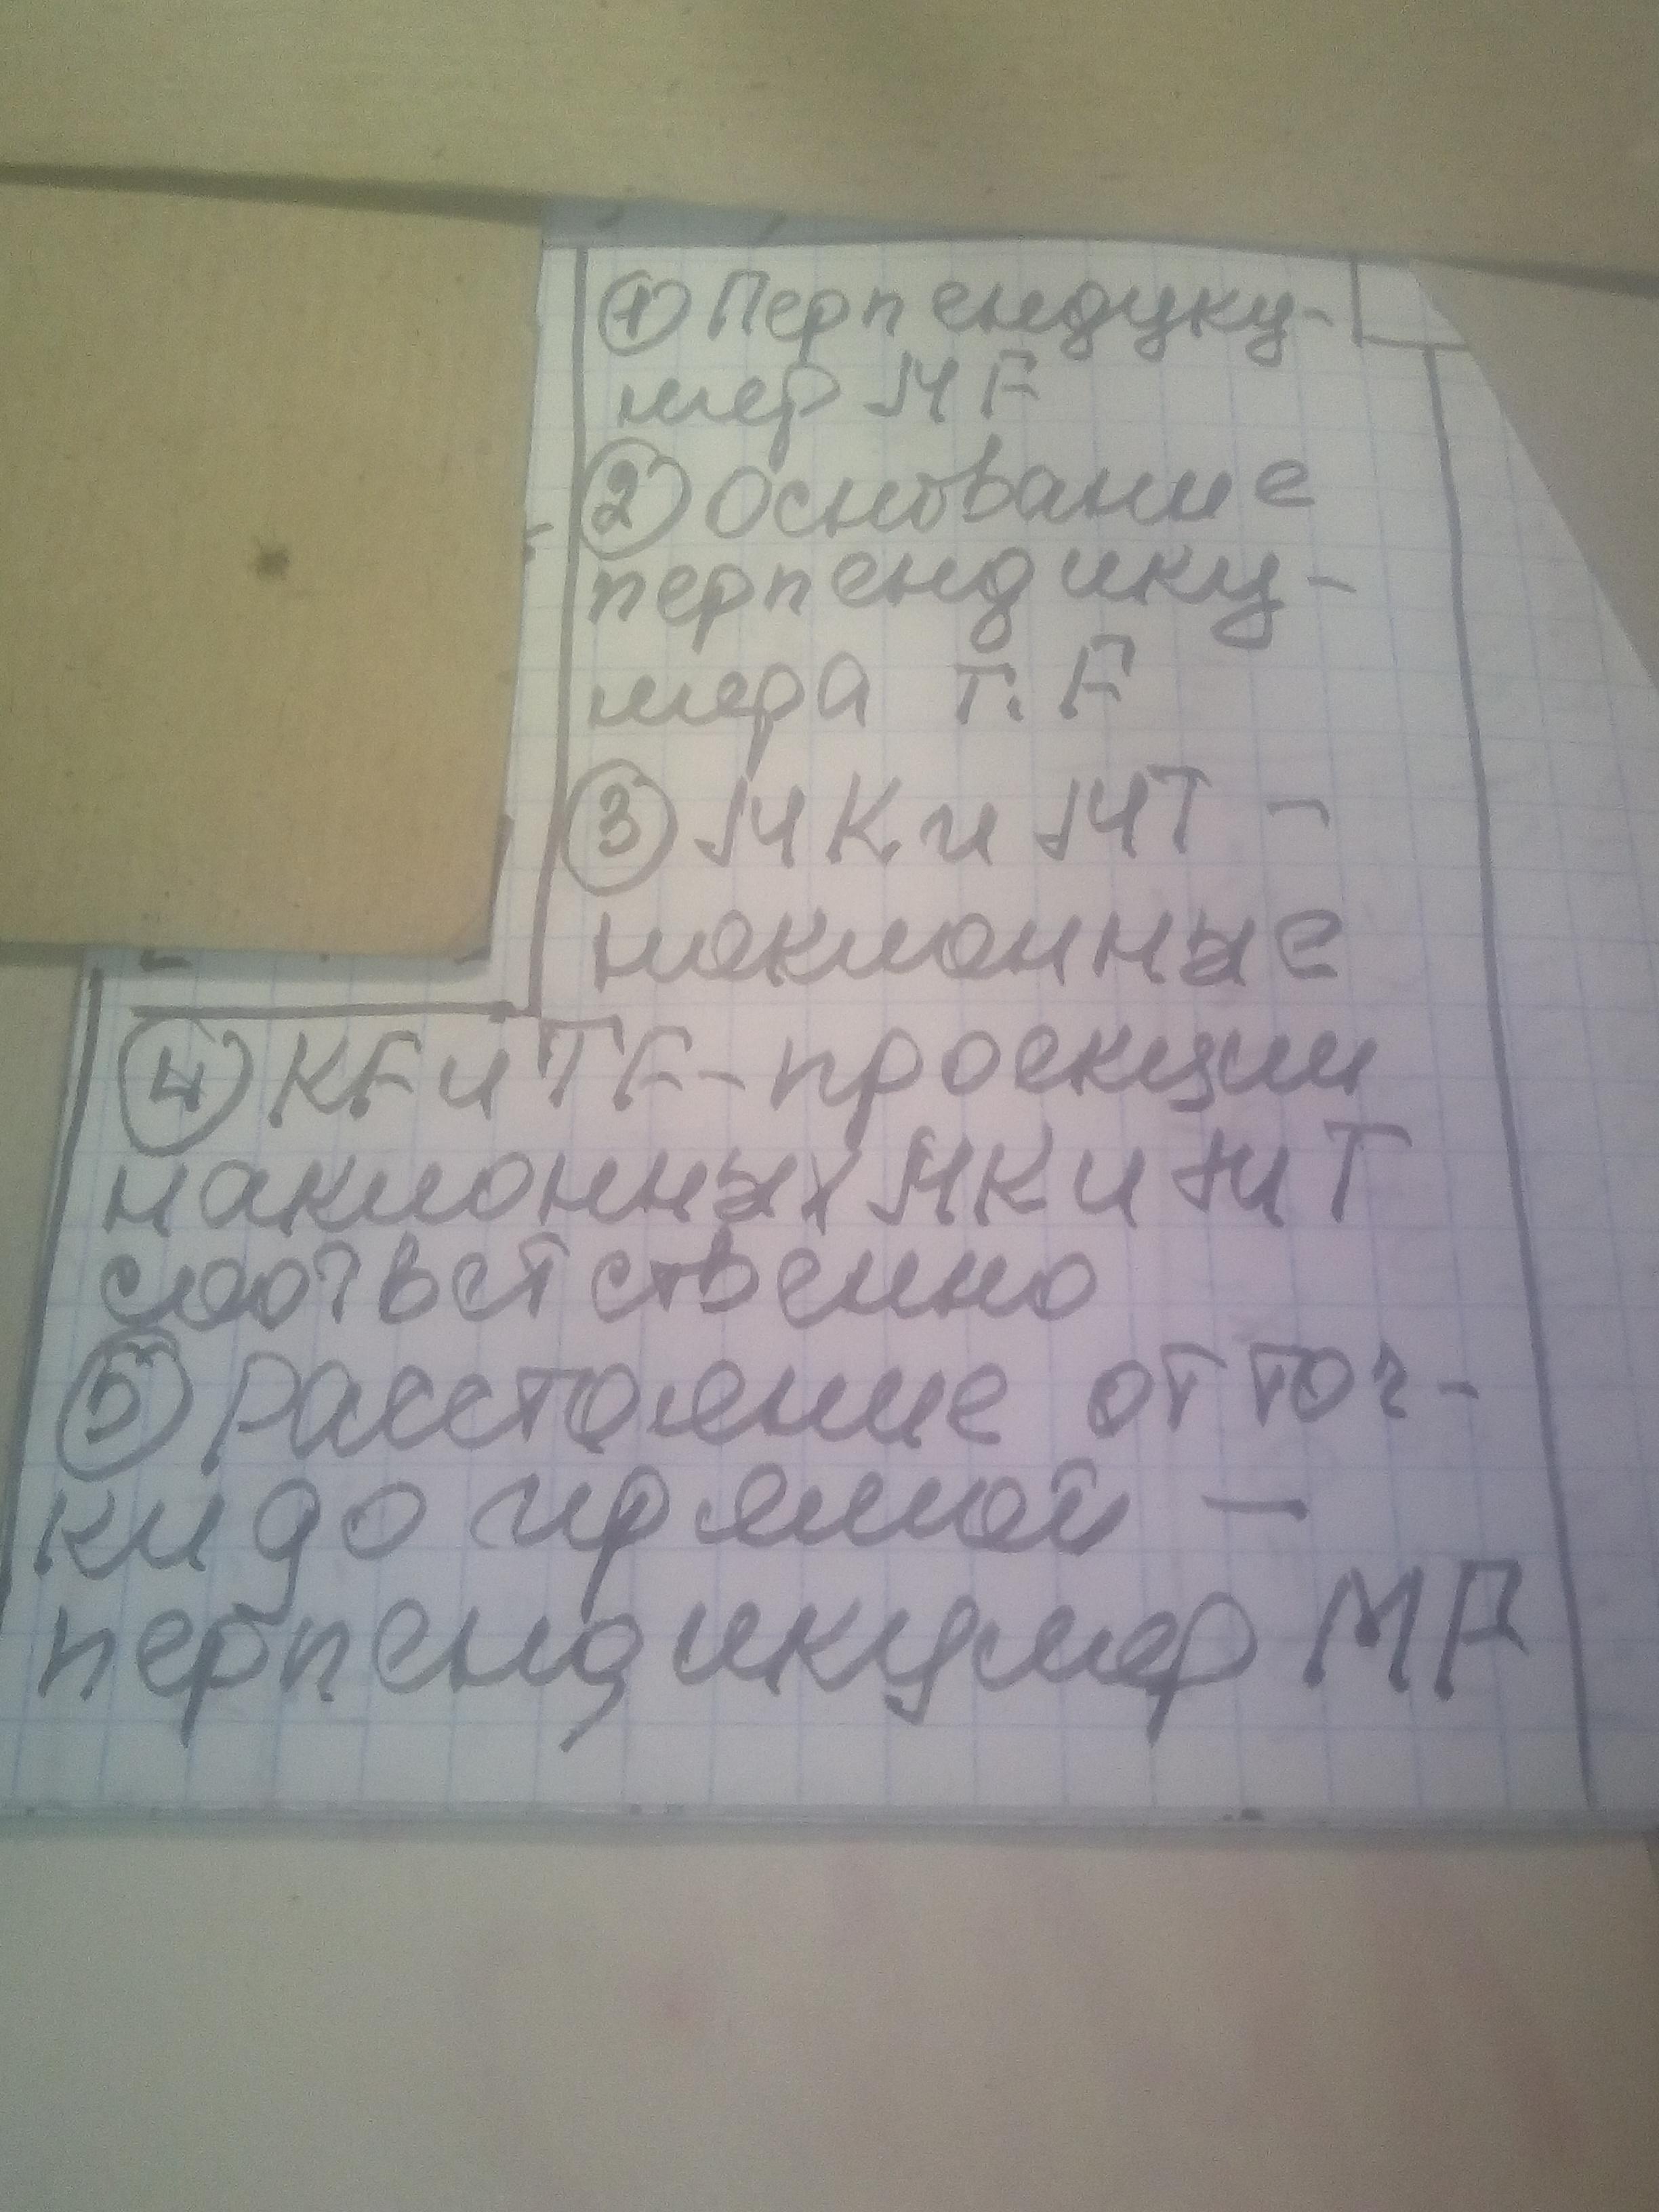 ① Перпендику-
ляр MF
② Основание
перпендику-
ляра т. F
③ MK и MT -
наклонные
④ KF и TF - проекции
наклонных MK и MT
соответственно
⑤ Расстояние от точ-
ки до прямой —
перпендикуляр MF